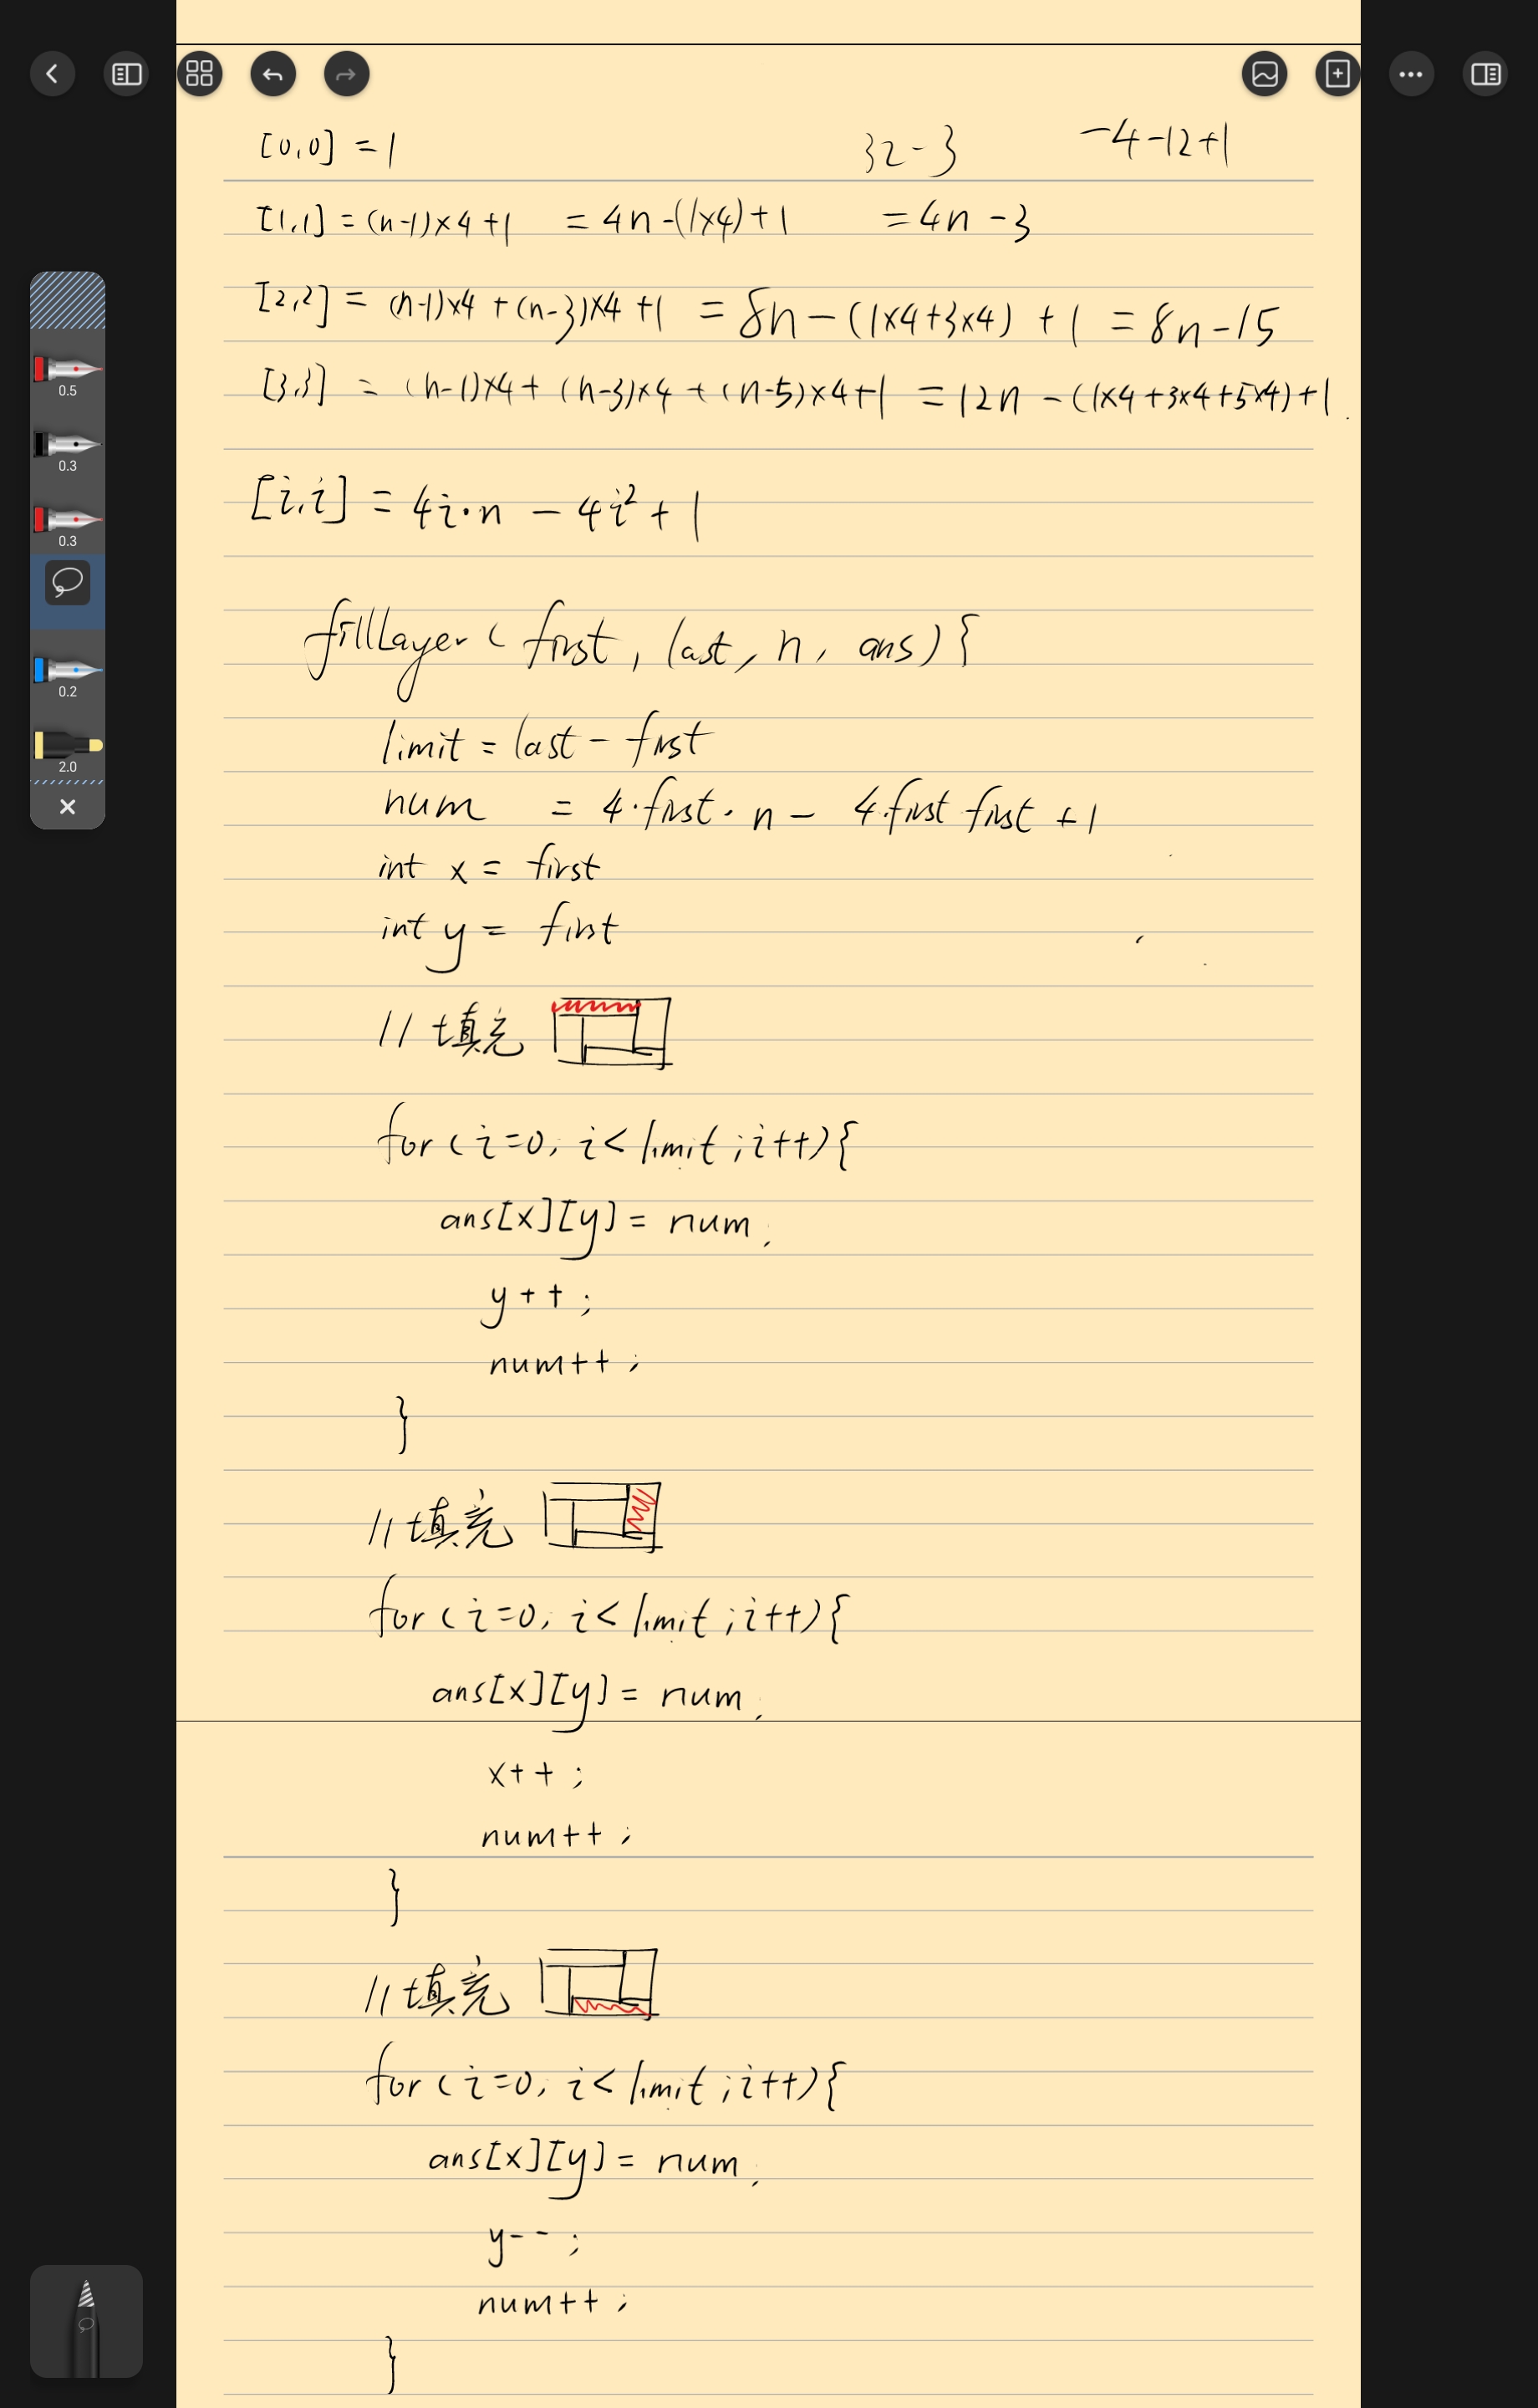 [0,0] = 1 32-3 -4-12+1
[1,1] = (n-1)×4+1 = 4n-(1×4)+1 = 4n-3
[2,2] = (n-1)×4+(n-3)×4+1 = 8n-(1×4+3×4)+1 = 8n-15
[3,3] = (n-1)×4+(n-3)×4+(n-5)×4+1 = 12n-(1×4+3×4+5×4)+1
[i,i] = 4i·n - 4i²+1
fillLayer(first, last, n, ans){
limit = last - first
num = 4·first·n - 4·first first +1
int x = first
int y = first
// 填充
for(i=0, i<limit;i++){
ans[x][y] = num;
y++;
num++;
}
// 填充
for(i=0, i<limit;i++){
ans[x][y] = num;
x++;
num++;
}
// 填充
for(i=0, i<limit;i++){
ans[x][y] = num;
y--;
num++;
}
0.5
0.3
0.3
0.2
2.0